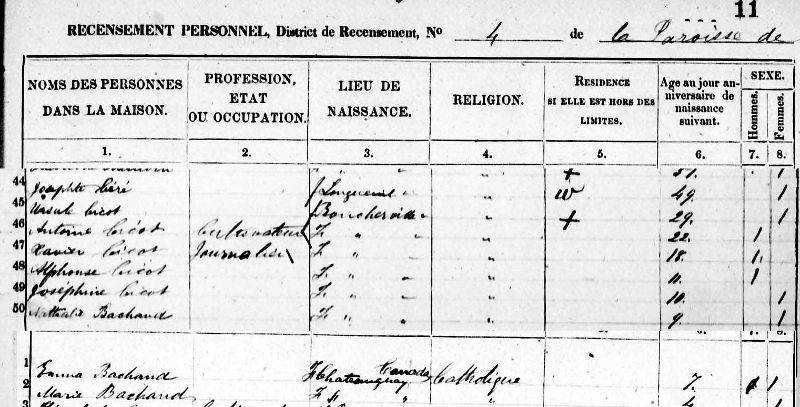 11
RECENSEMENT PERSONNEL, District de Recensement, No 4 de la Paroisse de
NOMS DES PERSONNES DANS LA MAISON. PROFESSION, ETAT OU OCCUPATION. LIEU DE NAISSANCE. RELIGION. RESIDENCE SI ELLE EST HORS DES LIMITES. Age au jour anniversaire de naissance suivant. SEXE. Hommes. Femmes.
1. 2. 3. 4. 5. 6. 7. 8.
+ 51. 1
44 Josephte F Longueuil " " 49. 1
45 Ursule Cicot F Boucherville " + 29. 1
46 Antoine Cicot Cultivateur F " " " 22. 1
47 Xavier Cicot Journalier F " " " 18. 1
48 Alphonse Cicot F " " " 11. 1
49 Joséphine Cicot F " " " 10. 1
50 Nathalie Bachand F " " " 9. 1
1 Emma Bachand F Chateauguay Canada Catholique 7. 1
2 Marie Bachand F " " " 4. 1
3